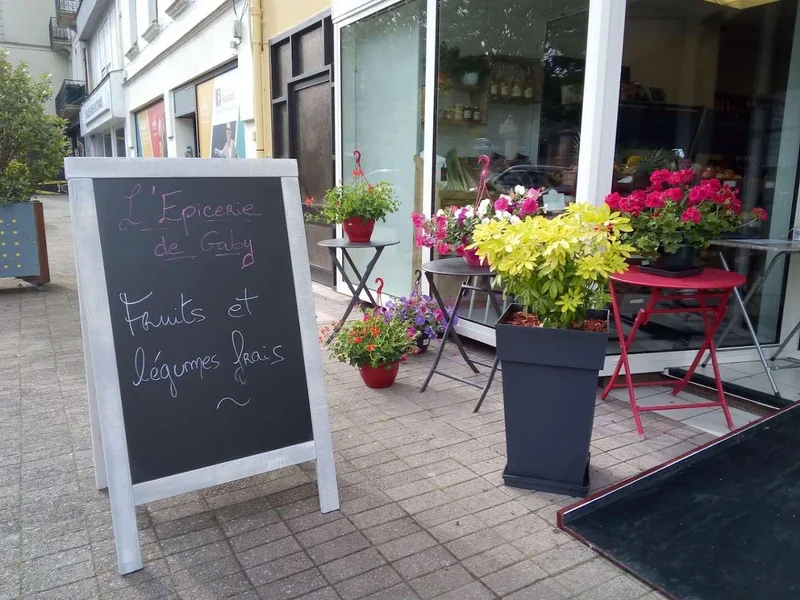 L'Epicerie
de Gaby
Fruits et
légumes frais
~